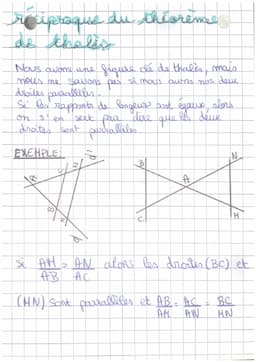 réciproque du théorème
de thalès
Nous avons une figure clé de thalès, mais
nous ne savons pas si nous avons nos deux
droites parallèles.
Si les rapports de longueur sont égaux, alors
on s'en sert pour dire que les deux
droites sont parrallèles
EXEMPLE:
B N
A
C M
si AM/AB = AN/AC alors les droites (BC) et
(MN) sont parrallèles et AB/AM = AC/AN = BC/MN